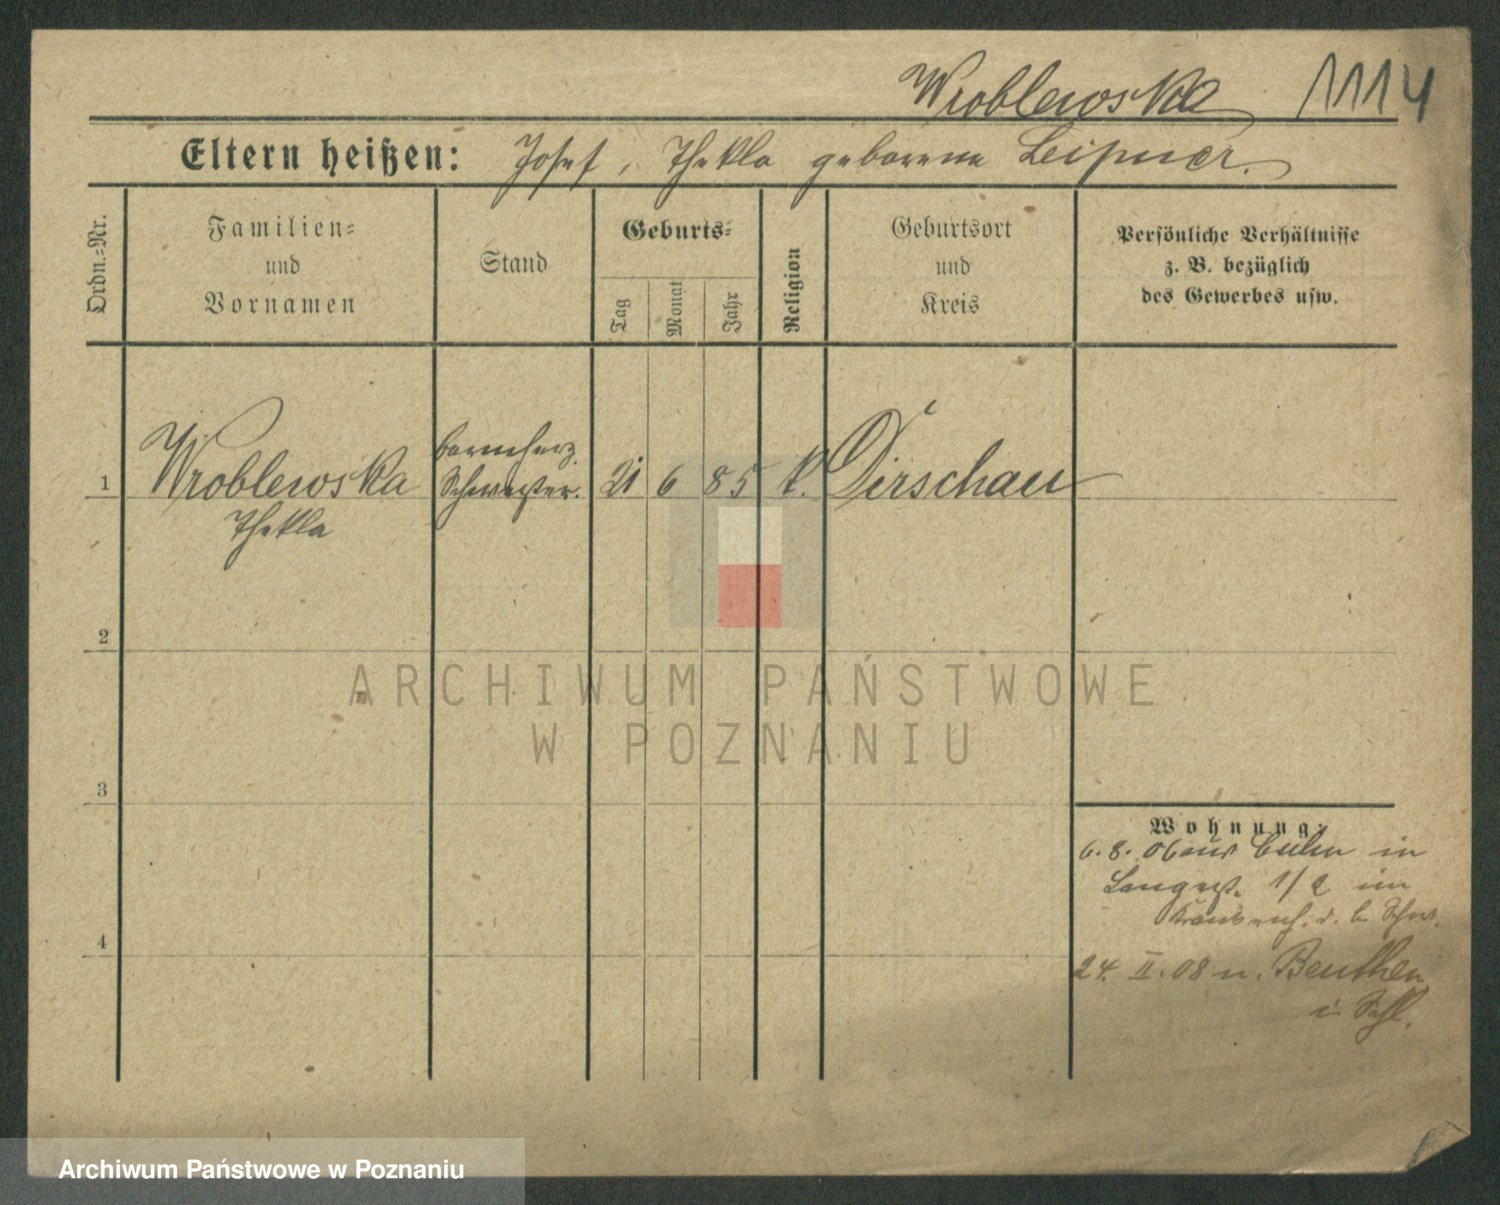 Wroblewska 1114
Eltern heißen: Josef, Thekla geborene Leipner.
Ordn.-Nr.
Familien-
und
Vornamen
Stand
Geburts-
Tag
Monat
Jahr
Religion
Geburtsort
und
Kreis
Persönliche Verhältnisse
z. B. bezüglich
des Gewerbes usw.
barmherz.
1 Wroblewska Schwester. 21 6 85 k. Dirschau
Thekla
2
3
4
Wohnung:
6. 8. 06 aus Culm in
Langgst. 1/2 im
24. II. 08 n. Beuthen
i. Schl.
ARCHIWUM PAŃSTWOWE
W POZNANIU
Archiwum Państwowe w Poznaniu